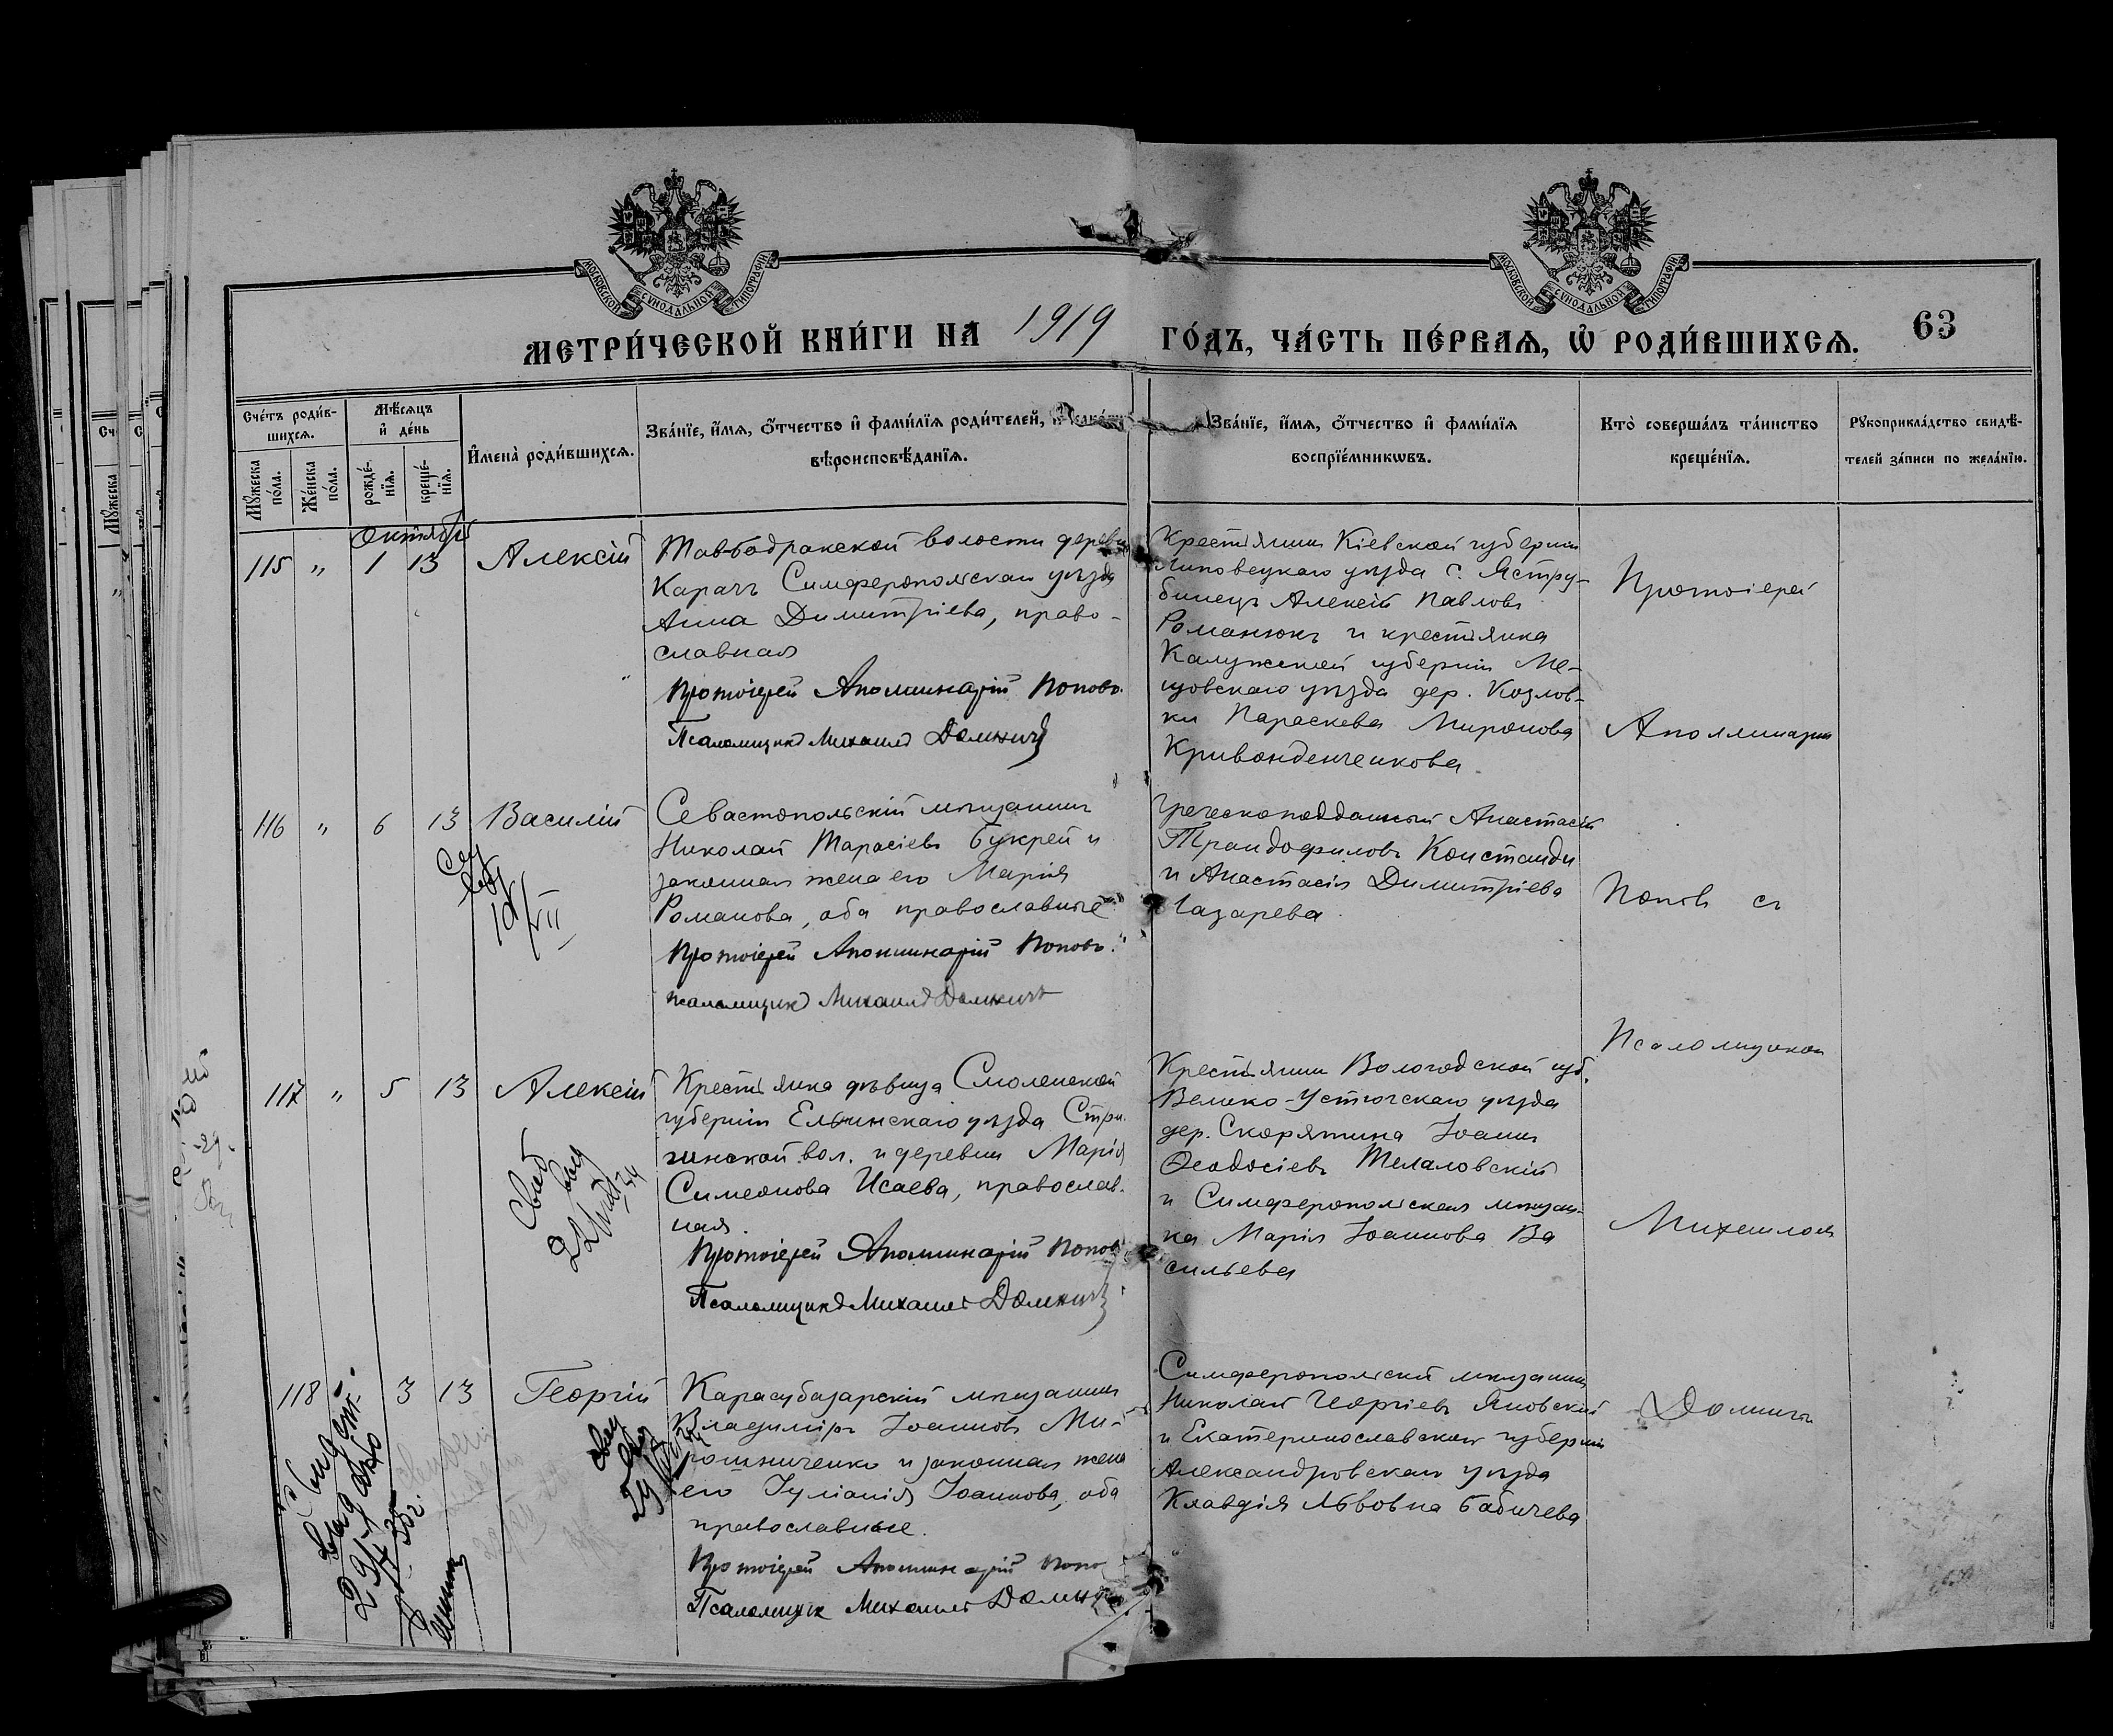 МОСКОВСКОЙ СѴНОДАЛЬНОЙ ТИПОГРАФІИ
МОСКОВСКОЙ СѴНОДАЛЬНОЙ ТИПОГРАФІИ
МЕТРИ́ЧЕСКОЙ КНИ́ГИ НА 1919 ГО́ДЪ, ЧА́СТЬ ПЕ́РВАѦ, Ѡ РОДИ́ВШИХСѦ. 63
Сче́тъ роди́в-
шихсѧ.
Мѣ́сѧцъ
и де́нь
Мꙋ́жеска
по́ла.
Же́нска
по́ла.
рожде́-
нїѧ.
креще́-
нїѧ.
Имена̀ роди́вшихсѧ.
Зва́нїе, и́мѧ, о́тчество и фами́лїѧ роди́телей, и
вѣроисповѣ́данїѧ.
Зва́нїе, и́мѧ, о́тчество и фами́лїѧ
воспрїе́мникѡвъ.
Кто̀ соверша́лъ та́инство
креще́нїѧ.
Рꙋкоприкла́дство свидѣ́-
телей за́писи по жела́нїю.
Октябрь
115 " 1 13 Алексій
Тав-Бадракской волости деревни
Карачъ Симферопольскаго уѣзда
Анна Димитріева, право-
славная
Протоіерей Аполлинарій Поповъ.
Псаломщикъ Михаилъ Доминич
Крестьянин Кіевской губерніи
Липовецкаго уѣзда с. Ястру-
бинецъ Алексій Павловъ
Романюкъ и крестьянка
Калужской губерніи Ме-
щовскаго уѣзда дер. Козлов-
ки Параскева Миронова
116 " 6 13 Василій
Севастопольскій мѣщанинъ
Николай Тарасіевъ Букрей и
законная жена его Марія
Романова, оба православные
Протоіерей Аполлинарій Поповъ.
псаломщикъ Михаилъ Доминич
Греческоподданный Анастасій
Трандофиловъ Констанди
и Анастасія Димитріева
Лазарева.
117 " 5 13 Алексій
Крестьянка дѣвица Смоленской
губерніи Ельнинскаго уѣзда Стри-
гинской вол. и деревни Марія
Симеонова Исаева, православ-
ная.
Протоіерей Аполлинарій Поповъ
Псаломщикъ Михаилъ Доминич
Крестьянин Вологодской губ.
Велико-Устюгскаго уѣзда
дер. Скорятина Іоаннъ
Ѳеодосіевъ
и Симферопольская мѣщан-
ка Марія Іоаннова Ва
сильева
118 3 13 Георгій
Карасубазарскій мѣщанинъ
Владиміръ Іоанновъ Ми-
рошниченко и законная жена
его Іуліанія Іоаннова, оба
православные.
Протоіерей Аполлинарій Попо
Псаломщик Михаилъ Доминич
Симферопольскій мѣщанин
Николай Георгіевъ Яновскій
и Екатеринославской губерніи
Александровскаго уѣзда
Клавдія Львовна Бабичева
Протоіерей
Аполлинарій
Поповъ съ
Псаломщикомъ
Михаиломъ
Доминич